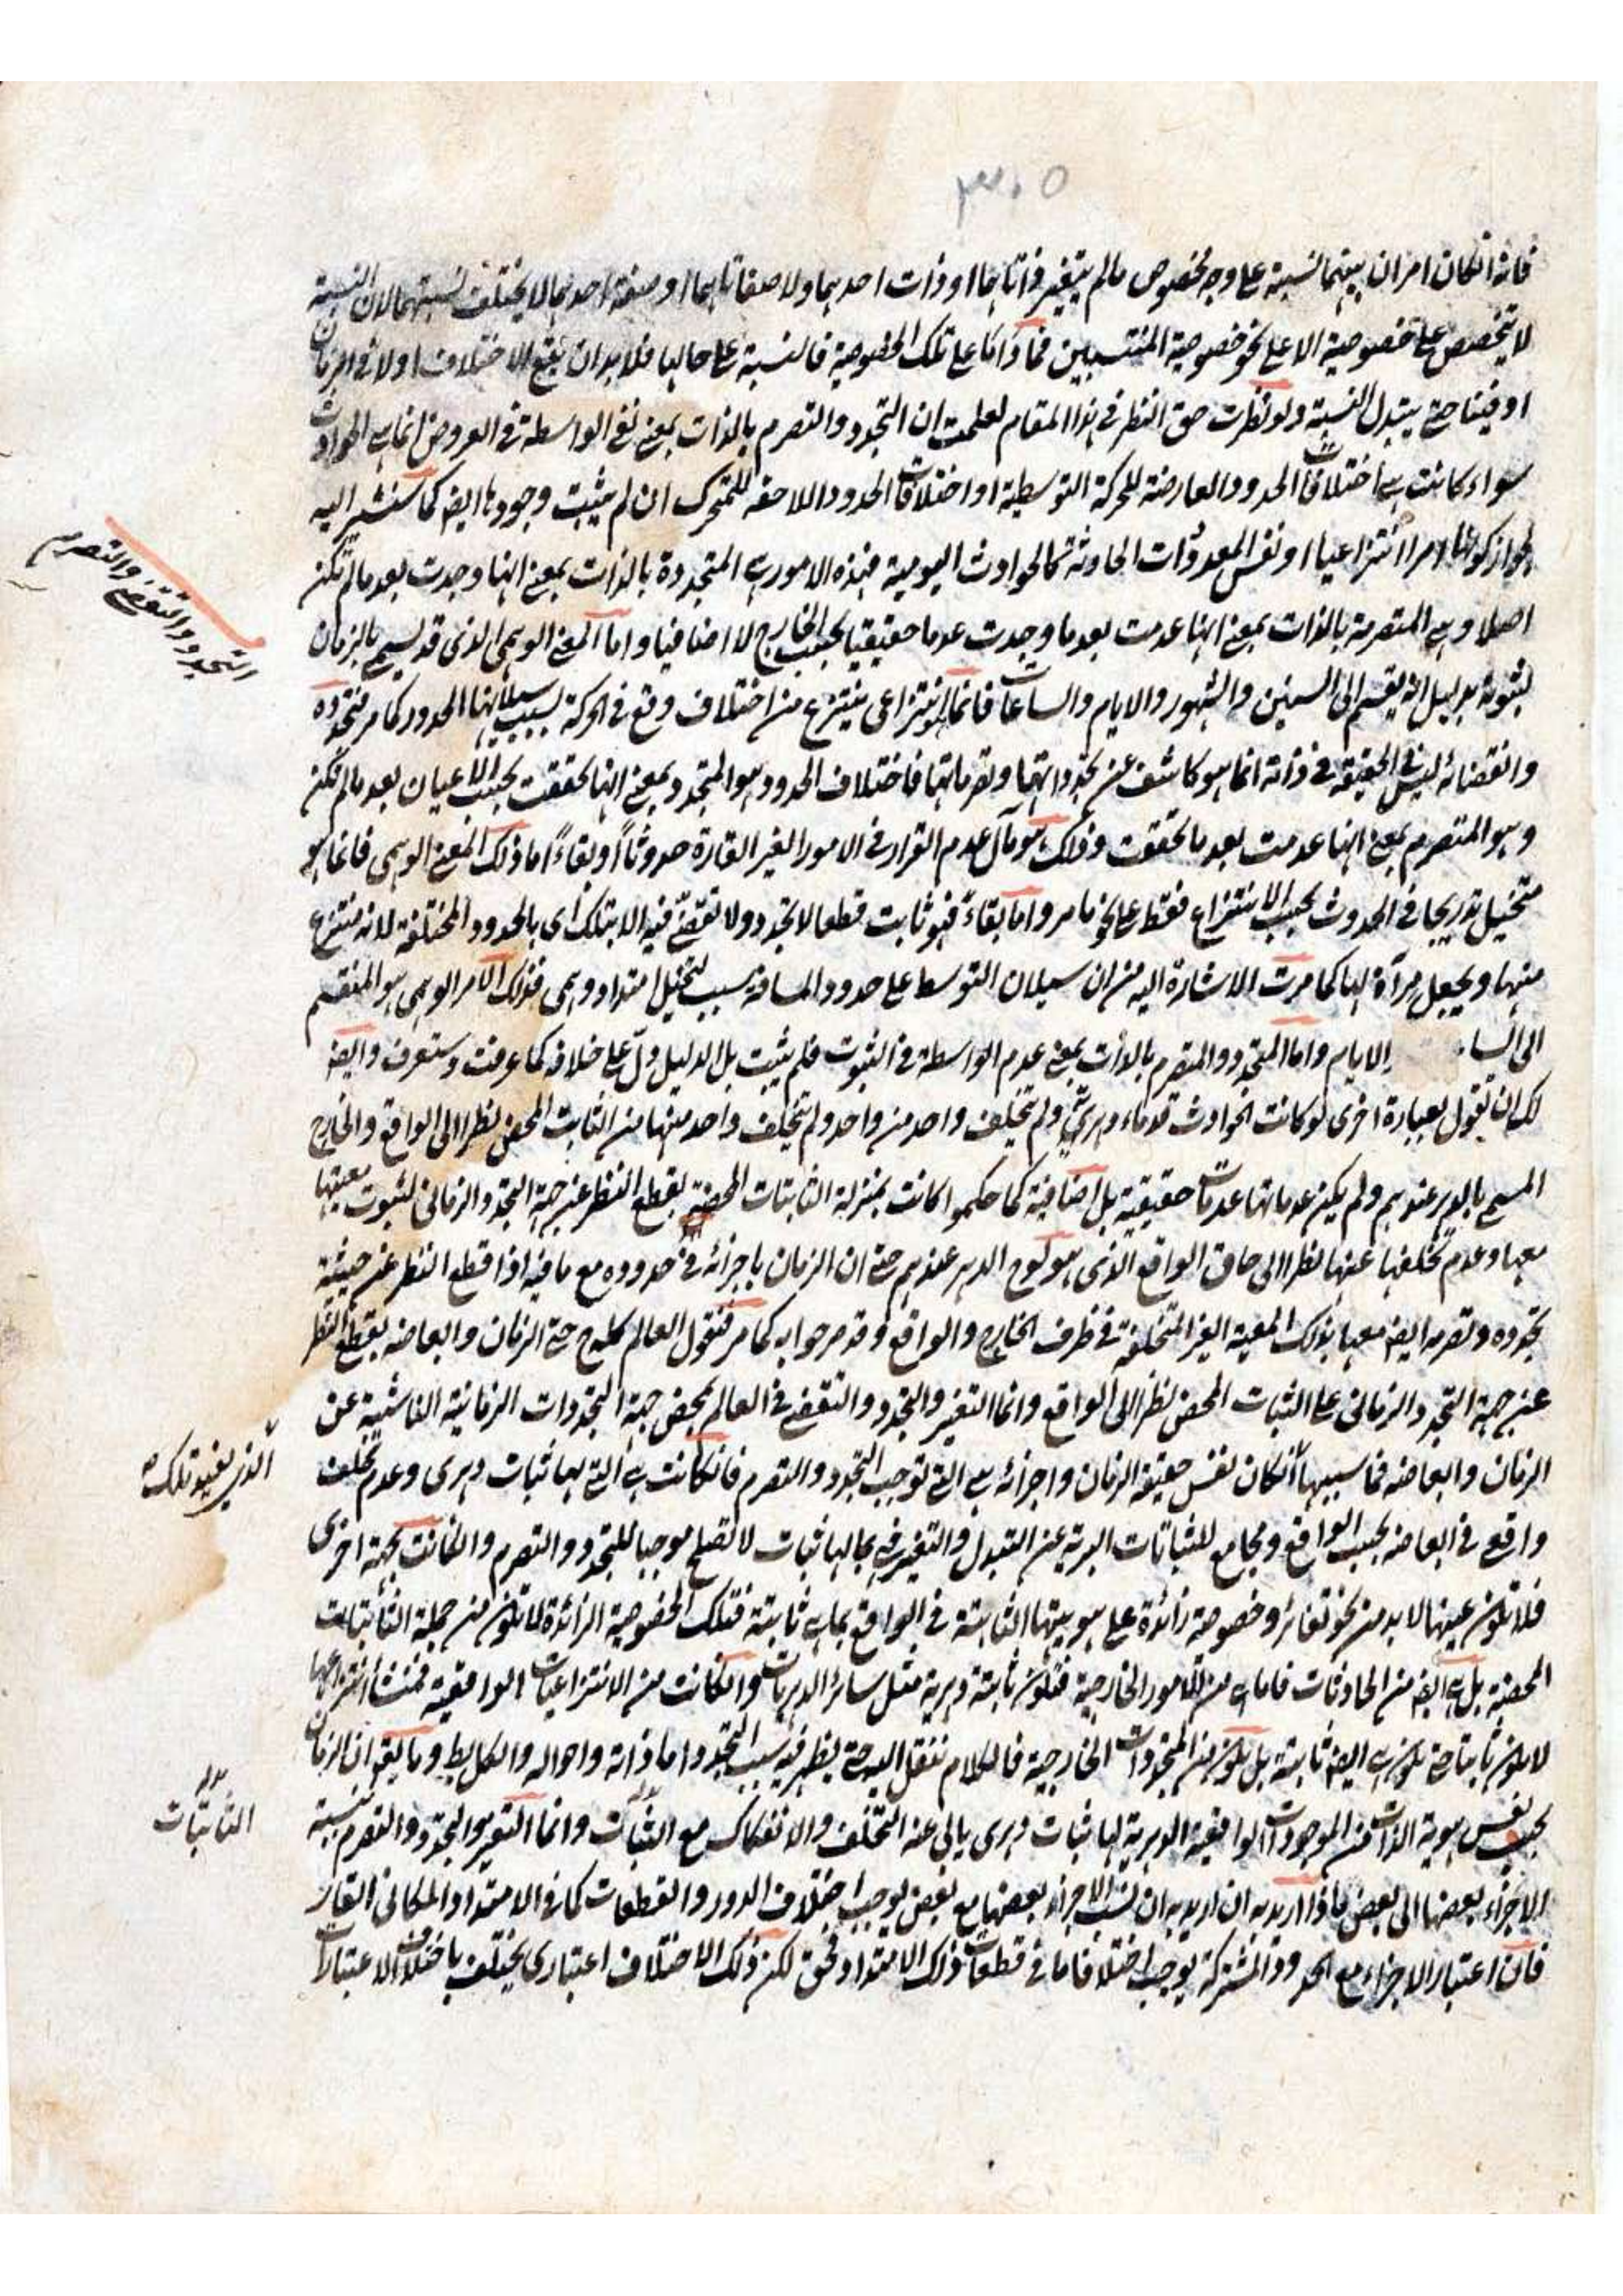 ٣٠٥
فانه اذا كان امران بينهما نسبة على وجه مخصوص مالم يتغير ذاتاهما او ذات احدهما ولا صفاتاهما او صفة احدهما لا يختلف نسبتهما لان النسبة
لا يتخصص على خصوصية الا على نحو خصوصية المنتسبين فما داما على تلك الخصوصية فالنسبة على حالها فلا بد ان يقع الاختلاف اولا في الزمان
او فينا حتى يتبدل النسبة ولو نظرت حق النظر في هذا المقام لعلمت ان التجدد والتصرم بالذات بمعنى نفي الواسطة في العروض انما هي الحوادث
سواء كانت هي اختلافات الحدود العارضة للحركة التوسطية او اختلافات الحدود اللاحقة للمتحرك ان لم يثبت وجودها ايضا كما سنشير اليه
لجواز كونها امرا انتزاعيا او نفس المعدوات الحادثة كالحوادث اليومية فهذه الامور هي المتجددة بالذات بمعنى انها وجدت بعد مالم تكن
اصلا وهي المتصرمة بالذات بمعنى انها عدمت بعد ما وجدت عدما حقيقيا بحسب الخارج لا اضافيا واما المعنى الوهمي الذي قد يسمى بالزمان
لثبوته بدليل انه يقسم الى السنين والشهور والايام والساعات فانما هو انتزاعي ينتزع من اختلاف وقع في الحركة بسبب سيلانها الحدود كما مر فتجدده
وانقضائه ليس في الحقيقة في ذاته انما هو كاشف عن تجدداتها وتصرماتها فاختلاف الحدود هو المتجدد بمعنى انها تحققت بحسب الاعيان بعد مالم تكن
وهو المتصرم بمعنى انها عدمت بعد ما تحققت وذلك هو مآل عدم القرار في الامور الغير القارة حدوثاً وبقاءً اما ذلك المعنى الوهمي فانما هو
متخيل تدريجا في الحدوث بحسب الانتزاع فقط على نحو ما مر واما بقاءً فهو ثابت قطعا لا تجدد ولا تقضّي فيه الا بتلك أي بالحدود المختلفة لانه منتزع
منها ويجعل مرآة لها كما مرت الاشارة اليه من ان سيلان التوسط على حدود المسافة سبب لتخيل امتداد وهمي فذلك الامر الوهمي هو المنقسم
الى السا والايام واما المتجدد والمتصرم بالذات بمعنى عدم الواسطة في الثبوت فلم يثبت بل الدليل دلّ على خلافه كما عرفت وستعرف وايضا
لك ان تقول بعبارة اخرى لو كانت الحوادث قدماء دهريّ ولم يتخلف واحد من واحد ولم يتخلف واحد منها من الثابت المحض نظرا الى الواقع والخارج
المسمى بالدهر عندهم ولم يكن عدماتها عدمات حقيقية بل اضافية كما حكموا كانت بمنزلة الثابتات المحضة بقطع النظر عن جهة التجدد الزماني لثبوت معيتها
معها وعدم تخلفها عنها نظرا الى حاق الواقع الذي هو كلوح الدهر عندهم حتى ان الزمان باجزائه في حدوده مع ما فيه اذا قطع النظر عن حيثية
تجدده وتصرمه ايضا معها بذلك المعية الغير المتخلفة في ظرف الخارج والواقع وقد مر جوابه كما مر فنقول العالم كله ح حتى الزمان وابعاضه بقطع النظر
عن جهة التجدد الزماني على الثبات المحض نظرا الى الواقع وانما التغير والتجدد والتقضي في العالم بمحض جهة التجددات الزمانية الناشية عن
الزمان وابعاضه فما سببها ان كان نفس حقيقة الزمان واجزائه هي التي توجب التجدد والتصرم فان كانت هي التي لها ثبات دهرى وعدم تخلف
واقع في ابعاضه بحسب الواقع ومجامع للثباتات البرية عن التبدل والتغير فهي بما لها ثبات لا تصلح موجبا للتجدد والتصرم وان كانت بجهة اخرى
فلا تكون عينها لا بد من نحو تغاير وخصوصية زائدة على هويتها الثابتة في الواقع بما هي ثابتة فتلك الخصوصية الزائدة لا تكون من جملة الثابتات
المحضة بل هي ايضا من الحادثات فاما هي من الامور الخارجية فتكون ثابتة دهرية مثل سائر الدهريات وان كانت من الانتزاعيات الواقعية فمنشأ انتزاعها
لا يكون ثابتا حتى تكون هي ايضا ثابتة بل تكون من المتجددات الخارجية فالكلام ننقل اليه حتى يظهر فيه سبب التجدد واما ذاته واحواله والكل بط وما يقال ان الزمان
بحسب نفس هوية الذات من الموجودات الواقعية الدهرية لها ثبات دهرى يابى عنه التخلف والانفكاك مع الثبات وانما التغير والتجدد والتصرم نسبة
الاجزاء بعضها الى بعض ماذا اريد به ان اريد به ان نسب الاجزاء بعضها مع بعض يوجب اختلاف الدور والقطعات كما في الامتداد المكاني القار
فان اعتبار الاجزاء مع الحدود المشتركة يوجب اختلافا ما في قطعات ذلك الامتداد فحق لكن ذلك الاختلاف اعتبارى يختلف باختلاف الاعتبارات
التجدد والتقضي والتصرم
الذي يفيد تلك
الثابتات